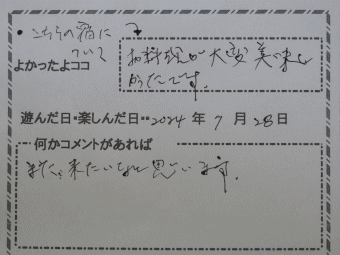 ・こちらの宿に
ついて
よかったよココ
お料理が大変美味し
かったです。
遊んだ日・楽しんだ日・・2024年7月28日
何かコメントがあれば
また、来たいなと思います。